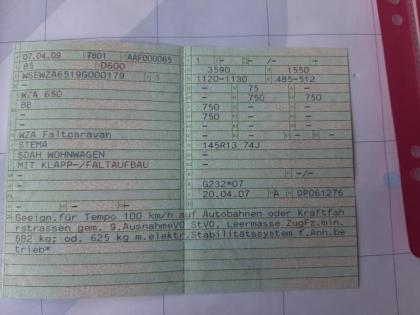 07.04.09 7801 AAF000065
85 D600
WSEWZA6519G000179
-
WZA 650
BB
-
-
WZA Faltcaravan
STEMA
SDAH WOHNWAGEN
MIT KLAPP-/FALTAUFBAU
-
- -
1 - -/-
3590 - 1550
1120-1130 485-512
- 75 -
750 - 750 750
750 - - -
- - - -
- - - -/-
145R13 74J
-
-
-
G232*07
20.04.07 A OP061276
Geeign.für Tempo 100 km/h auf Autobahnen oder Kraftfah
rstrassen gem. 9.AusnahmeVO StVO, Leermasse ZugFz.min.
682 kg; od. 625 kg m.elektr.Stabilitätssystem f.Anh.be
trieb*